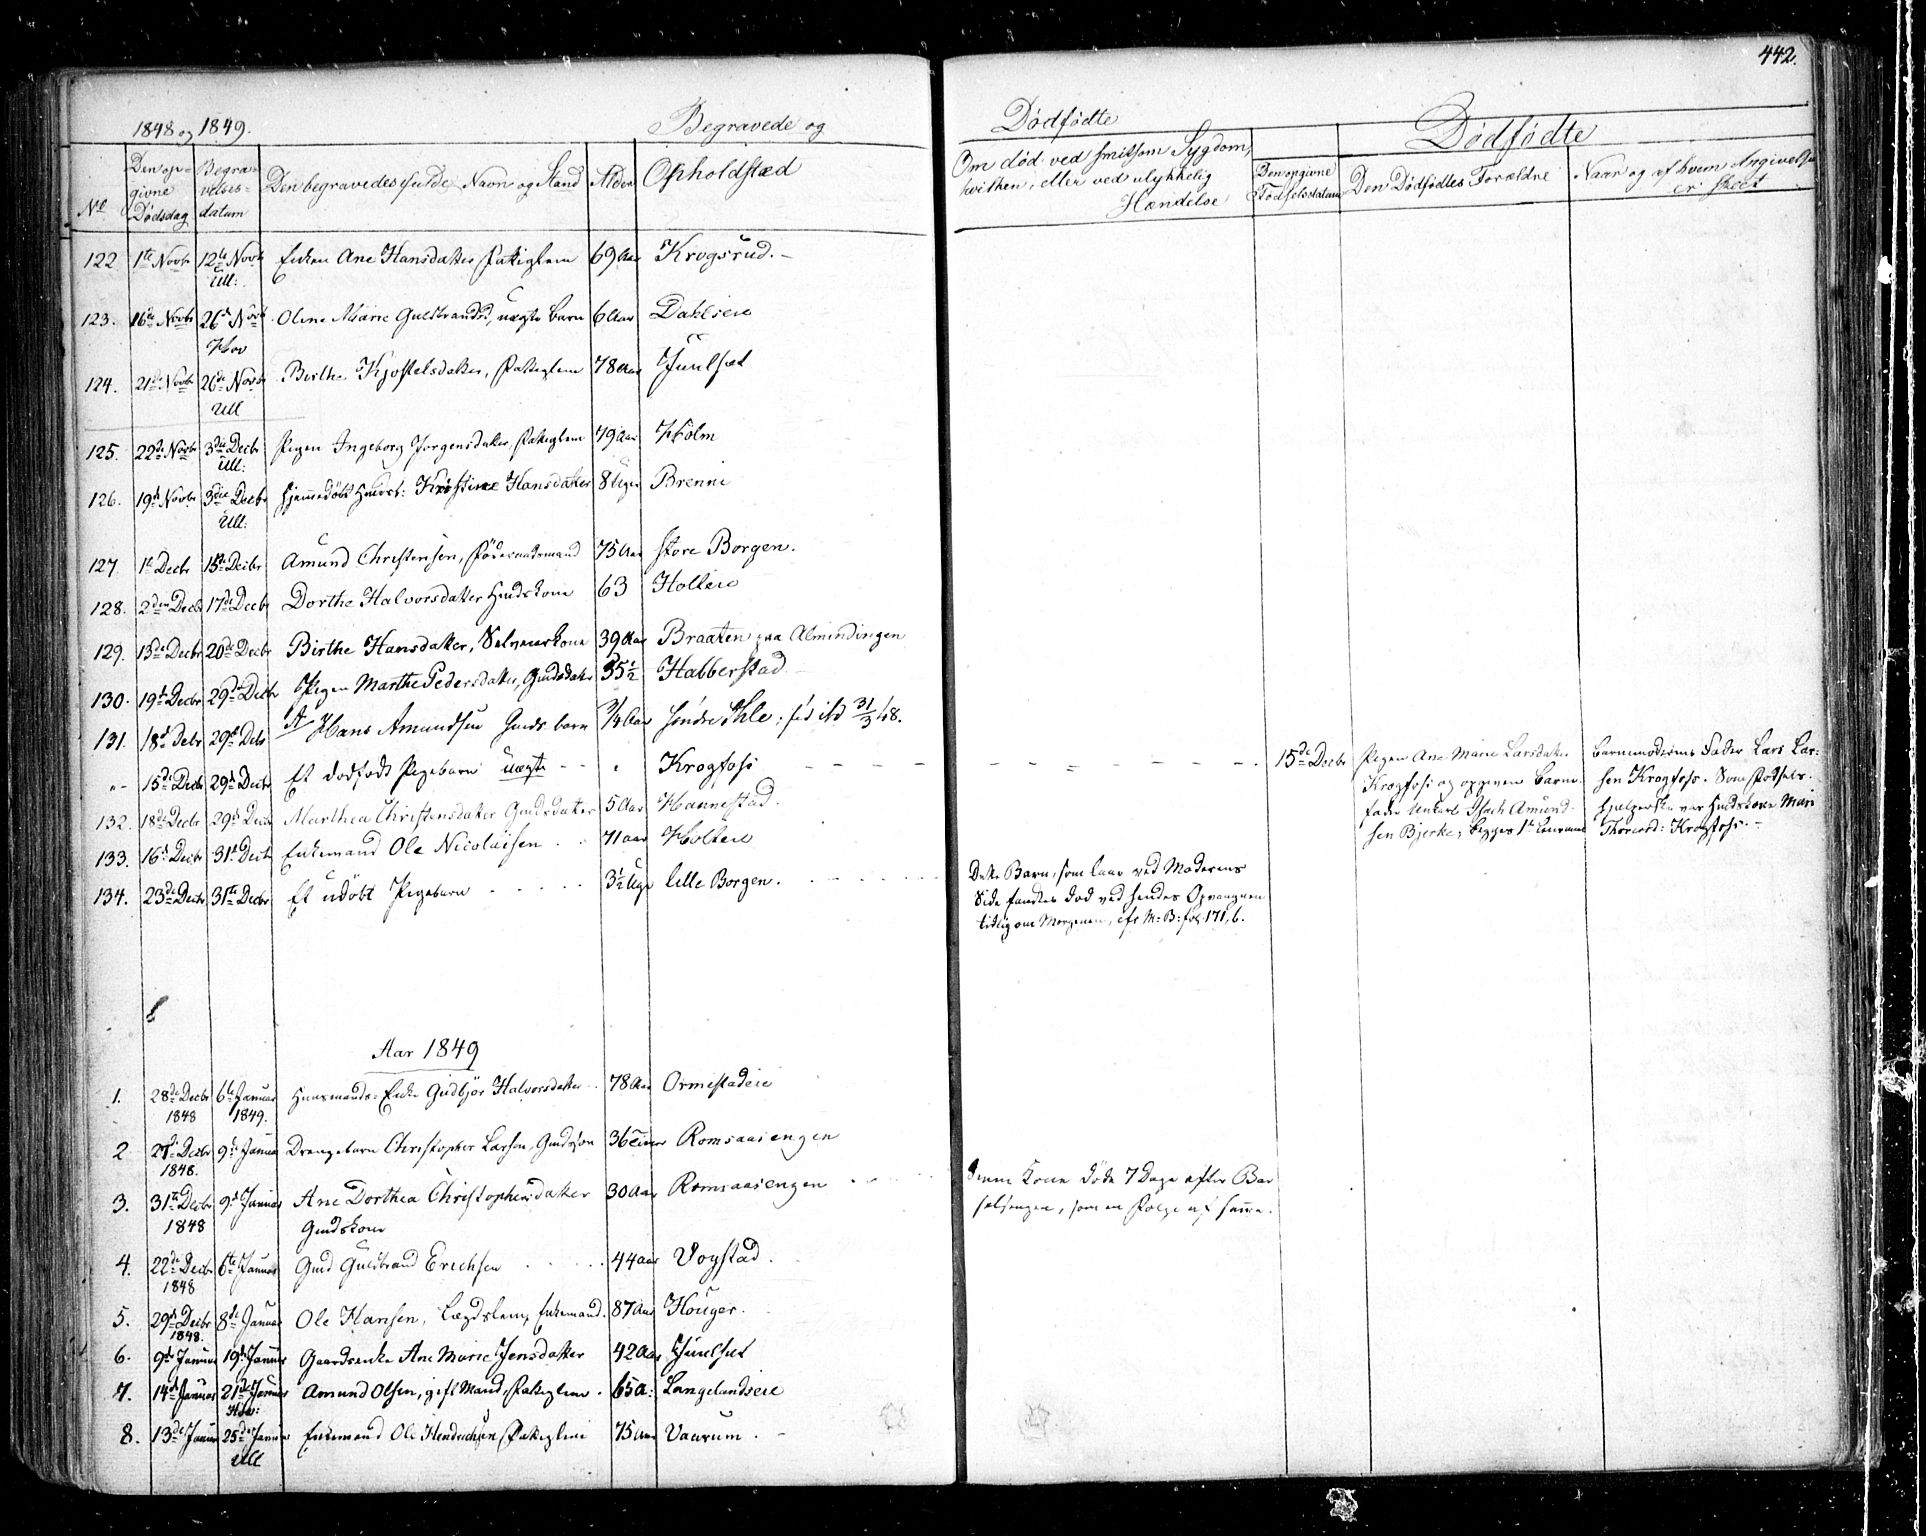 442.
1848 og 1849. Begravede og Dødfødte
Dødfødte
No Den opgivne Dødsdag Begravelses-datum Den begravedes fulde Navn og Stand Alder Opholdsted Om død ved smitsom Sygdom, hvilken, eller ved ulykkelig Hændelse Den opgivne Fødselsdatum Den Dødfødtes Forældre Naar og af hvem Angivelse er skeet
122 1te Novbr 12te Novbr Ull: Enken Ane Hansdatter Fattiglem 69 Aar Krogsrud.
123. 16de Novbr 26de Novbr Hov Oline Marie Guldbrandsd, uægte Barn 6 Aar Dahleie
124. 21de Novbr 26de Novbr Ull Birthe Kjostelsdatter, Fattiglem 78 Aar Juulset
125. 22de Novbr 3die Decbr Ull: Pigen Ingeborg Jørgensdatter, Fattiglem 79 Aar Holm
126. 19de Novbr 3die Decbr Ull: hjemmedøbt Kristine Hansdatter 8 Uger Brenni
127. 1te Decbr 15de Decbr Amund Christensen, Føderaadsmand 75 Aar store Borgen.
128. 2den Decbr 17de Decbr Dorthe Halvorsdatter Huuskone 63 Holteie
129. 13de Decbr 20de Decbr Birthe Hansdatter, Selveierkone 39 Aar Braaten paa Almindingen
130. 19de Decbr 29de Decbr Pigen Marthe Pedersdatter, Gmdsdatter 35½ Habberstad
131. 18de Debr 29de Debr Hans Amundsen Gmds barn ¾ Aar søndre Ihle; fød 31/3 48.
"- 15de Decbr 29de Decbr Et dødfødt Pigebarn uægte - - " Krogfoss 15de Decbr Pigen Ane Marie Larsdatter Barnemoderens Fader Lars Lar-
Krogfoss og opgiven Barne- sen Krogfoss. Som Fødsels-
fader Unkarl Isach Amund- hjælperske var Huuskone Mari
sen Bjerke; begges 1te Leiermaal Thorersd: Krogfoss. -
132. 18de Decbr 29de Decbr Marthea Christensdatter Gmdsdatter 5 Aar Hannestad.
133. 16de Decbr 31te Decbr Enkemand Ole Nicolaisen 71 aar Holteie
134. 23de Decbr 31te Decbr Et udøbt Pigebarn 3½ Uge lille Borgen. Dette Barn, som laae ved Moderens
Side fandtes død ved hendes Opvaagnen
tidlig om Morgenen, cfr M: B: fol. 171, 6.
Aar 1849
1. 28de Decbr 1848 6te Januar 1849. Huusmands-Enke Gudbjør Halvorsdatter 78 Aar Ormestadeie
2 27de Decbr 1848. 9de Januar Drengebarn Christopher Larsen, Gmdssøn 36 Romsaasengen
3. 31te Decbr 1848 9de Januar Ane Dorthea Christophersdatter Gmdskone 30 Aar Romsaasengen Denne Kone døde 7 Dage efter Bar-
selsengen, som en Følge af samme.
4. 22de Decbr 1848 6te Januar Gmd Guldbrand Erichsen 44 aar Vogstad.
5. 29de Decbr 1848. 8de Januar Ole Hansen, Lægdslem, Enkemand. 87 Aar Houger.
6. 9de Januar 19de Januar Gaardsenke Ane Marie Jensdatter 42 Aar Juulset
7. 14de Januar 21de Januar Hov: Amund Olsen, gift Mand, Fattiglem. 65 A: Langelandseie
8. 13de Januar 25de Januar Ull Enkemand Ole Hendrichsen, Fattiglem 75 Aar Vaarum.